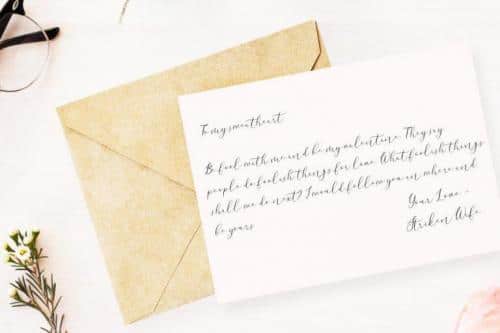 To my sweetheart
Be fool with me and be my valentine. They say
people do foolish things for love. What foolish things
shall we do next? I would follow you anywhere and
be yours
Your Love -
Striken Wife